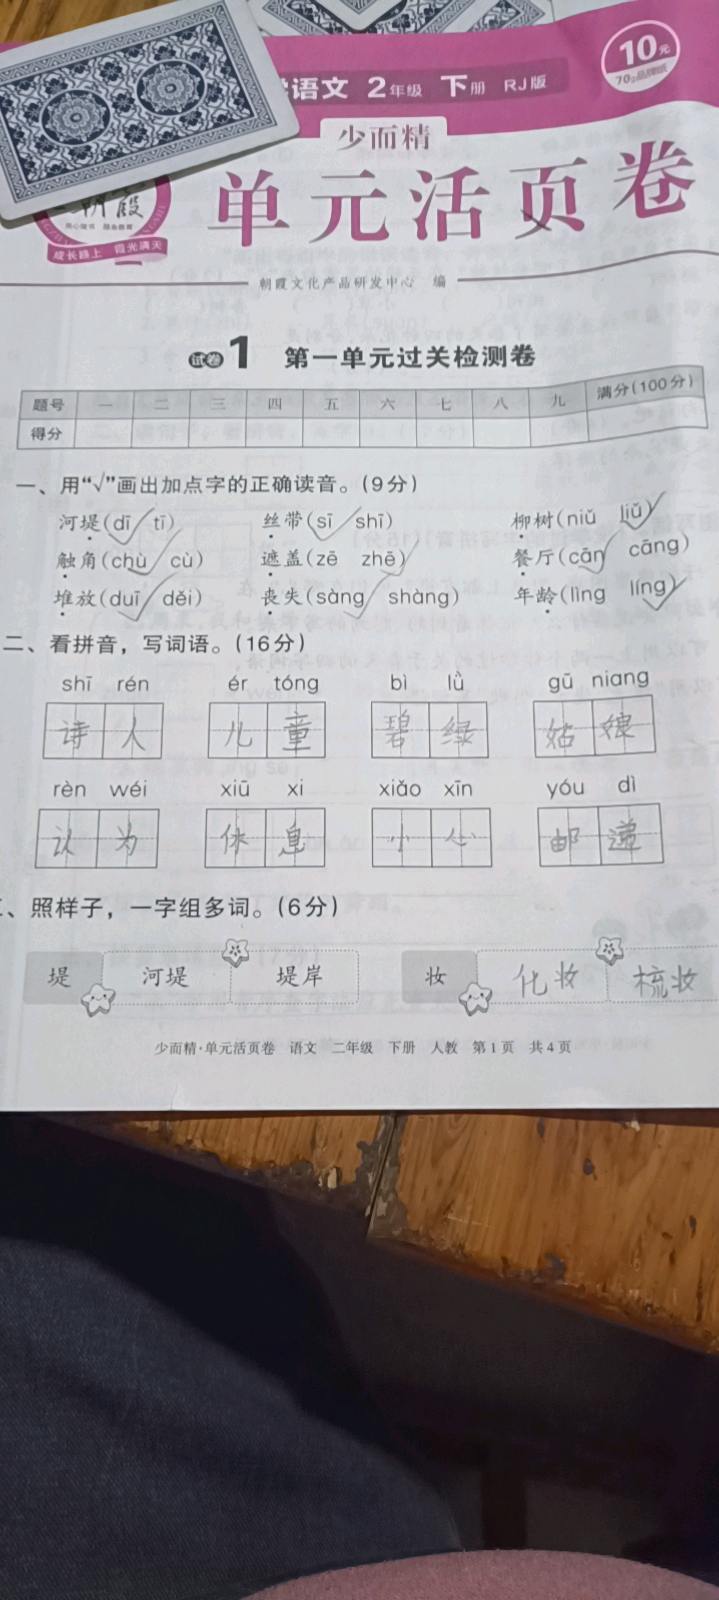 语文 2年级 下册 RJ版
10元
70g品牌纸
少而精
单元活页卷
朝霞
成长路上 霞光满天
朝霞文化产品研发中心 编
试卷1 第一单元过关检测卷
题号 一 二 三 四 五 六 七 八 九 满分(100分)
得分
一、用“√”画出加点字的正确读音。(9分)
河堤(dī√ tī) 丝带(sī√ shī) 柳树(niǔ liǔ√)
触角(chù√ cù) 遮盖(zē zhē√) 餐厅(cān√ cāng)
堆放(duī√ děi) 丧失(sàng√ shàng) 年龄(lìng líng√)
二、看拼音，写词语。(16分)
shī rén ér tóng bì lǜ gū niang
诗人 儿童 碧绿 姑娘
rèn wéi xiū xi xiǎo xīn yóu dì
认为 休息 小心 邮递
、照样子，一字组多词。(6分)
堤 河堤 堤岸 妆 化妆 梳妆
少而精·单元活页卷 语文 二年级 下册 人教 第1页 共4页